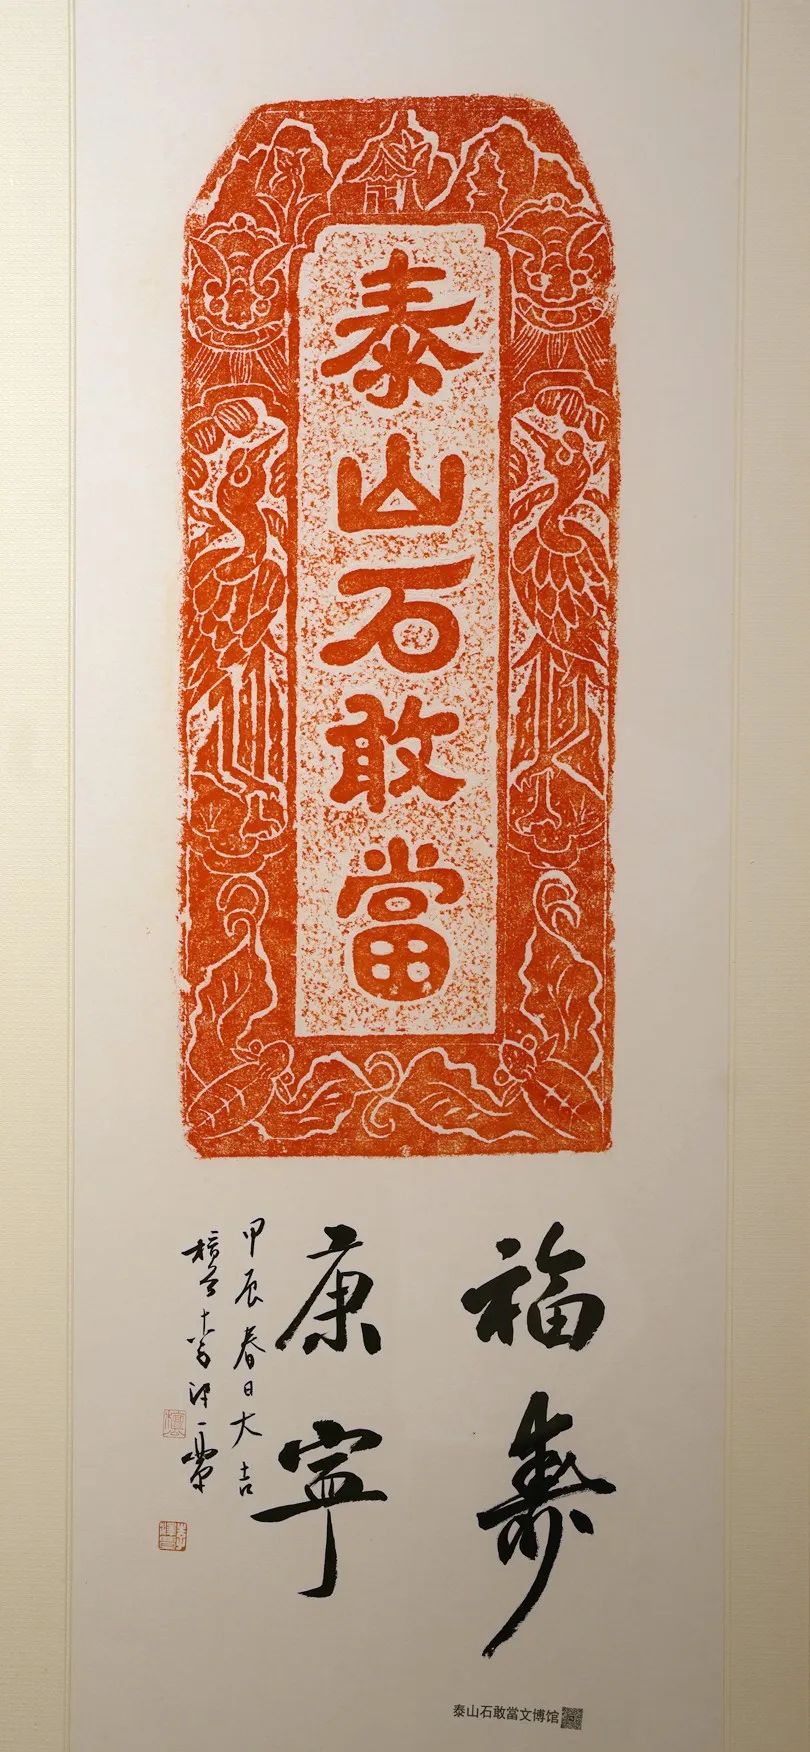 泰山石敢當
福壽
康寧
甲辰春日大吉
泰山石敢當文博馆